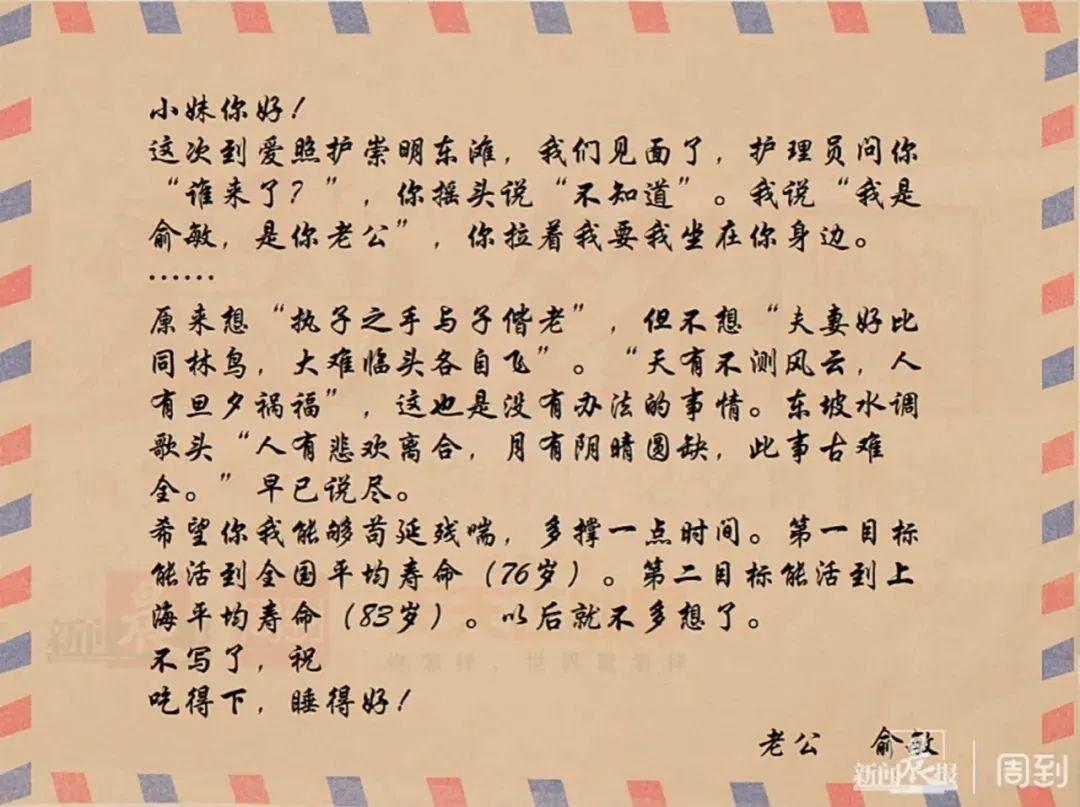 小妹你好！
这次到爱照护崇明东滩，我们见面了，护理员问你
“谁来了？”，你摇头说“不知道”。我说“我是
俞敏，是你老公”，你拉着我要我坐在你身边。
······
原来想“执子之手与子偕老”，但不想“夫妻好比
同林鸟，大难临头各自飞”。“天有不测风云，人
有旦夕祸福”，这也是没有办法的事情。东坡水调
歌头“人有悲欢离合，月有阴晴圆缺，此事古难
全。”早已说尽。
希望你我能够苟延残喘，多撑一点时间。第一目标
能活到全国平均寿命（76岁）。第二目标能活到上
海平均寿命（83岁）。以后就不多想了。
不写了，祝
吃得下，睡得好！
老公 俞敏
新闻晨报 周到